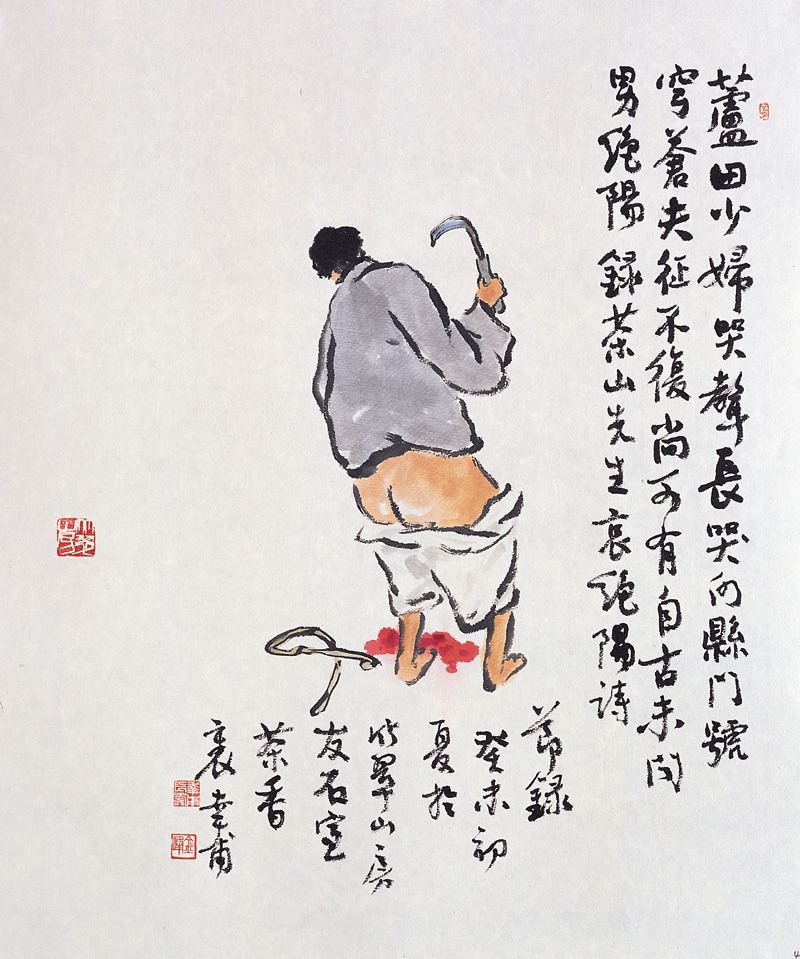 蘆田少婦哭聲長哭向縣門號
穹蒼夫征不復尚可有自古未聞
男絶陽 録茶山先生哀絶陽詩
節録
癸未初
夏於
翠山房
友石室
茶香
裏幸甫